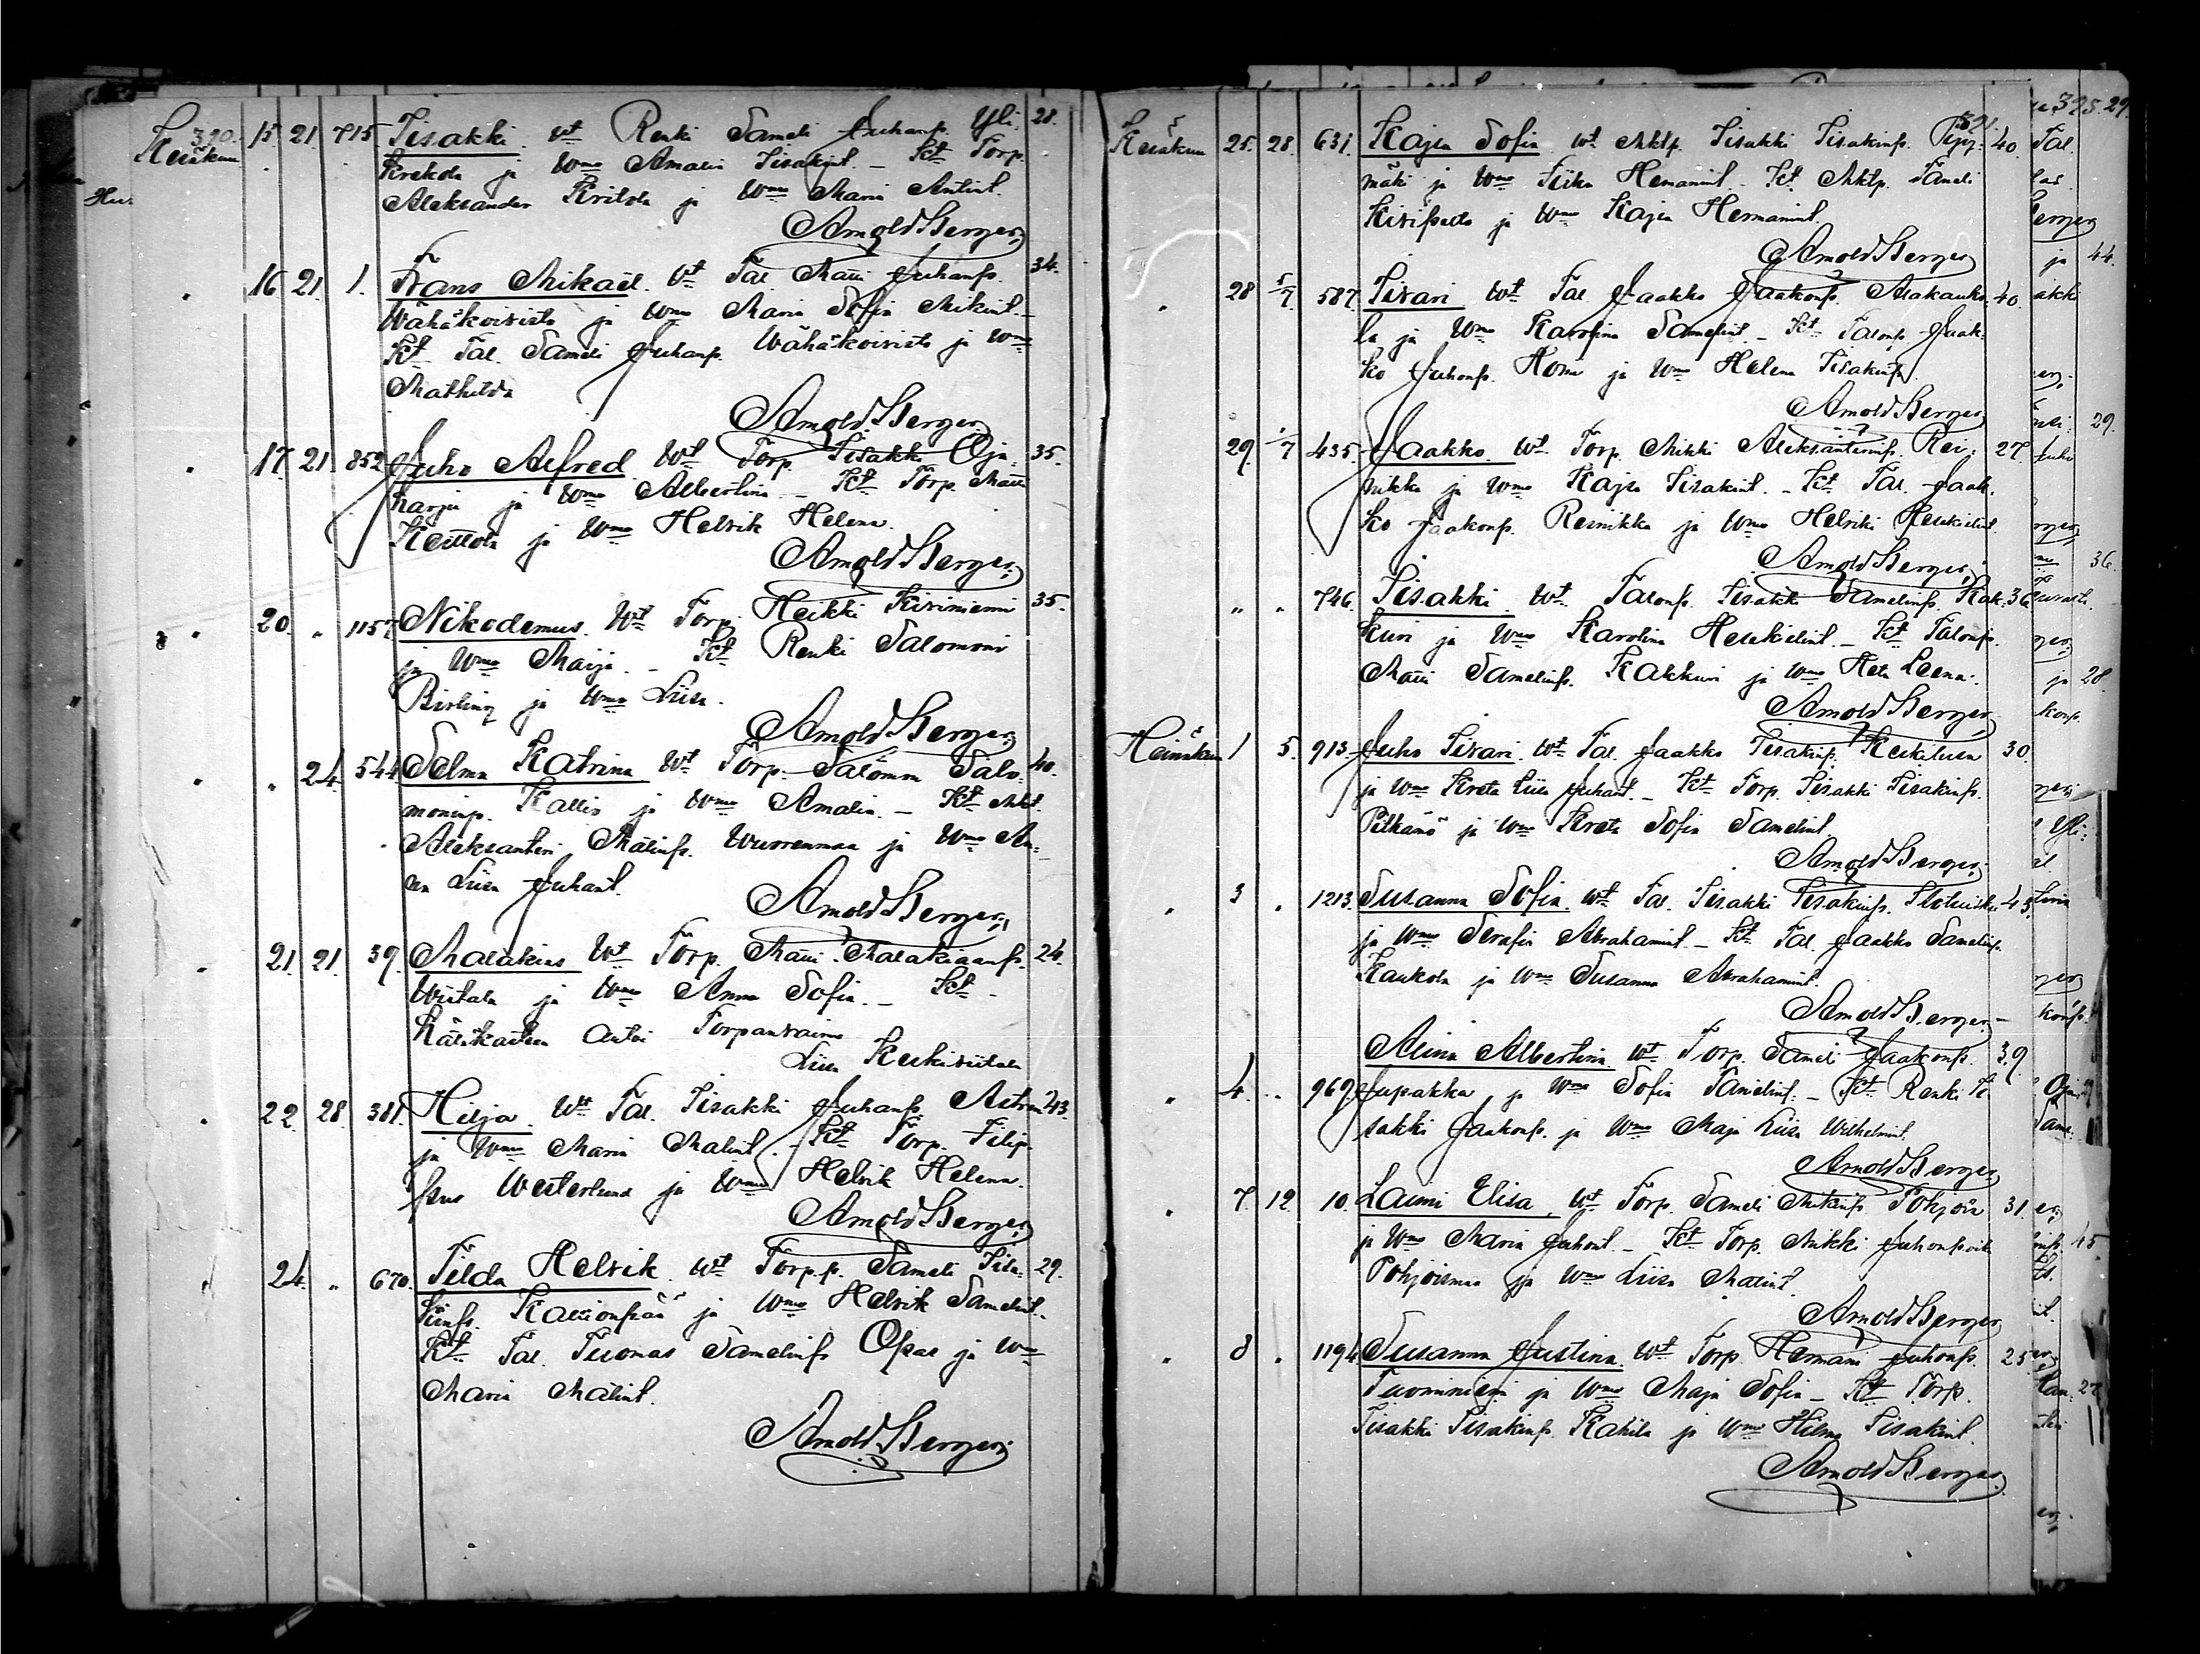 320.
Kesäkuu 15 21 715 Iisakki wt Renki Sameli Juhanp. Yli- 28.
krekola ja Wmo Amalia Iisakint. – Kt Torp.
Aleksander Kritola ja Wmo Maria Antint.
Arnold Berger
16 21. 1. Frans Mikael. Wt Tal. Matti Juhanp. 34.
Wähäkoivisto ja Wmo Maria Sofia Mikint. –
Kt Tal. Sameli Juhanp. Wähäkoivisto ja Wmo
Mathilda
Arnold Berger
17. 21 852 Juho Alfred Wt Torp. Iisakki Oja- 35.
harju ja Wmo Albertina – Kt Torp. Matti
Kettola ja Wmo Helvik Helena.
Arnold Berger
20. „ 1157 Nikodemus. Wt Torp. Heikki Kiviniemi 35.
ja Wmo Maija. – Kt Renki Salomoni
Birling ja Wmo Liisa.
Arnold Berger
„ 24. 544 Selma Katrina Wt Torp. Salomon Salo- 40.
moninp. Kallis ja Wmo Amalia. – Kt Mkt.
Aleksanteri Matinp. Wuorenmaa ja Wmo An-
na Liisa Juhant.
Arnold Berger
21. 21. 39. Malakias Wt Torp. Matti Malakiaanp. 24.
Wiitala ja Wmo Anna Sofia. – Kt –
Hätäkasteen Antoi Torpanvaimo
Liisa Keskiwiitala
22. 28 381. Hilja. Wt Tal. Iisakki Juhanp. 43.
ja Wmo Maria Matint. – Kt Torp. Filip-
pus Westerlund ja Wmo Helvik Helena.
Arnold Berger
24. „ 670. Tilda Helvik. wt Torp.p. Sameli Iisa- 29.
kinp. Kallionpää ja Wmo Helvik Samelint.
Kt Tal. Tuomas Samelinp. ja Wmo
Maria Matint.
Arnold Berger
321.
Kesäkuu 25. 28. 631. Kajsa Sofia wt Mktp. Iisakki Iisakinp. 40.
mäki ja Wmo Fiika Hermannint. – Kt Mktp. Sameli
ja Wmo Kajsa Hermannint.
Arnold Berger
28 5/7 587. Iivari Wt Tal. Jaakko Jaakonp. Alakauko- 40.
la ja Wmo Karolina Samelint. – Kt Talonp. Jaak-
ko Juhonp. ja Wmo Helena Iisakint.
Arnold Berger
29. 1/7 435. Jaakko Wt Torp. Mikki Aleksanterinp. Rei- 27.
nikka ja Wmo Kajsa Iisakint. – Kt Tal. Jaak-
ko Jaakonp. Reinikka ja Wmo Helviki Heikintint.
Arnold Berger
„ „ 746. Iisakki. Wt Talonp. Iisakki Samelinp. Kak- 36
kuri ja Wmo Karolina Heikintint – Kt Talonp.
Matti Samelinp. Kakkuri ja Wmo Heta Leena.
Arnold Berger
Heinäkuu 1 5. 913. Juho Iivari. Wt Tal. Jaakko Iisakinp. 30
ja Wmo Kreta Liisa Juhant. – Kt Torp. Iisakki Iisakinp.
Pitkänö ja Wmo Kreta Sofia Samelint.
Arnold Berger
3 „ 1213. Susanna Sofia. wt Tal. Iisakki Iisakinp. 43
ja Wmo Serafia Abrahamint – Kt Tal. Jaakko Samelinp.
Kaukola ja Wmo Susanna Abrahamint.
Arnold Berger
Alina Albertina wt Torp. Sameli Jaakonp. 39.
4. „ 969. Jupakka ja Wmo Sofia Samelint. – Kt Renki Ii-
sakki Jaakonp. ja Wmo Maja Liisa Wilhelmint.
Arnold Berger
7. 12 10. Laimi Elisa. Wt Torp. Sameli Mikinp. Pohjois 31.
ja Wmo Maria Juhont. – Kt Torp. Mikki Juhonpoika
Pohjoismaa ja Wmo Liisa Matint.
Arnold Berger
8 „ 1194 Susanna Justina. Wt Torp. Hermanni Juhonp. 25
Tuominiemi ja Wmo Maja Sofia – Kt Torp.
Iisakki Iisakinp. Kahila ja Wmo Hilma Iisakint.
Arnold Berger